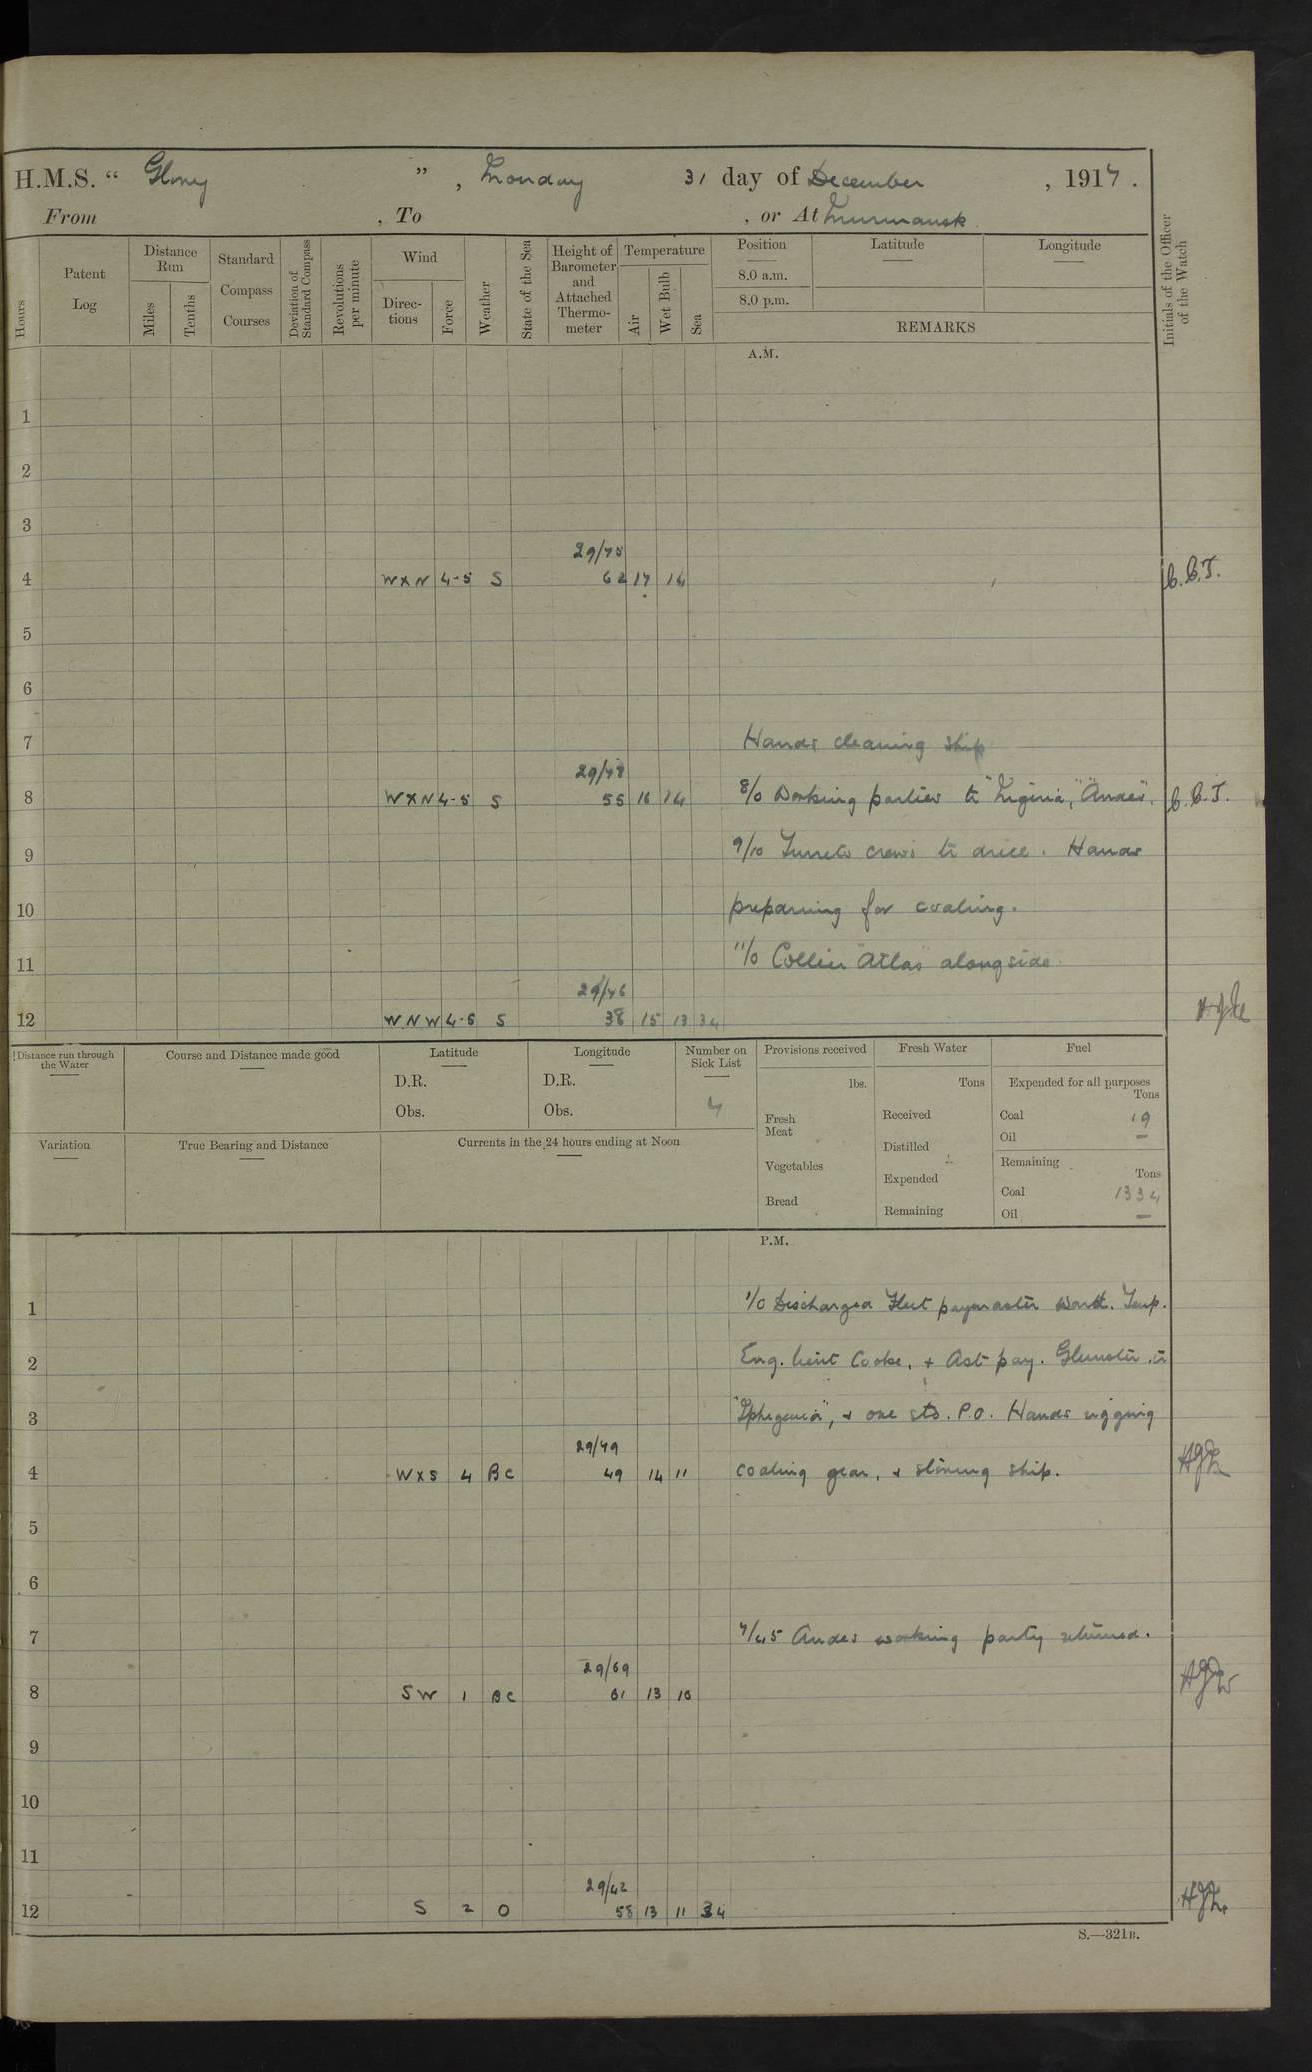 H.M.S. “ Glory ” , Monday 31 day of December , 1917 .
From , To , or At Murmansk
Hours
Patent Log
Distance Run
Miles
Tenths
Standard Compass Courses
Deviation of Standard Compass
Revolutions per minute
Wind
Direc-tions
Force
Weather
State of the Sea
Height of Barometer and Attached Thermo-meter
Temperature
Air
Wet Bulb
Sea
Position
8.0 a.m.
8.0 p.m.
Latitude
Longitude
REMARKS
Initials of the Officer of the Watch
A.M.
1
2
3
29/75
4 WXN 4-5 S 62 17 14
5
6
7 Hands cleaning ship
29/78
8 WXN 4-5 S 55 16 14 8/0 Working parties to "Nigeria", "Andes". C.C.T.
9 9/10 Turrets crews to drill. Hands
10 preparing for coaling.
11 11/0 Collier "Atlas" alongside
29/46
12 WNW 4-5 S 38 15 13 34
Distance run through the Water
Course and Distance made good
Latitude
D.R.
Obs.
Longitude
D.R.
Obs.
Number on Sick List
4
Provisions received
lbs.
Fresh Meat
Vegetables
Bread
Fresh Water
Tons
Received
Distilled
Expended
Remaining
Fuel
Expended for all purposes
Tons
Coal 19
Oil —
Remaining
Tons
Coal 1334
Oil —
Variation
True Bearing and Distance
Currents in the 24 hours ending at Noon
P.M.
1 1/0 Discharged Fleet paymaster Temp.
2 Eng. Lieut Cooke, + Ast pay. to
3 "Iphigenia", + one sto. P.O. Hands rigging
29/49
4 WXS 4 BC 49 14 11 coaling gear, + ship.
5
6
7 7/45 Andes working party returned.
29/69
8 SW 1 BC 61 13 10
9
10
11
29/42
12 S 2 O 58 13 11 34
S.—321B.